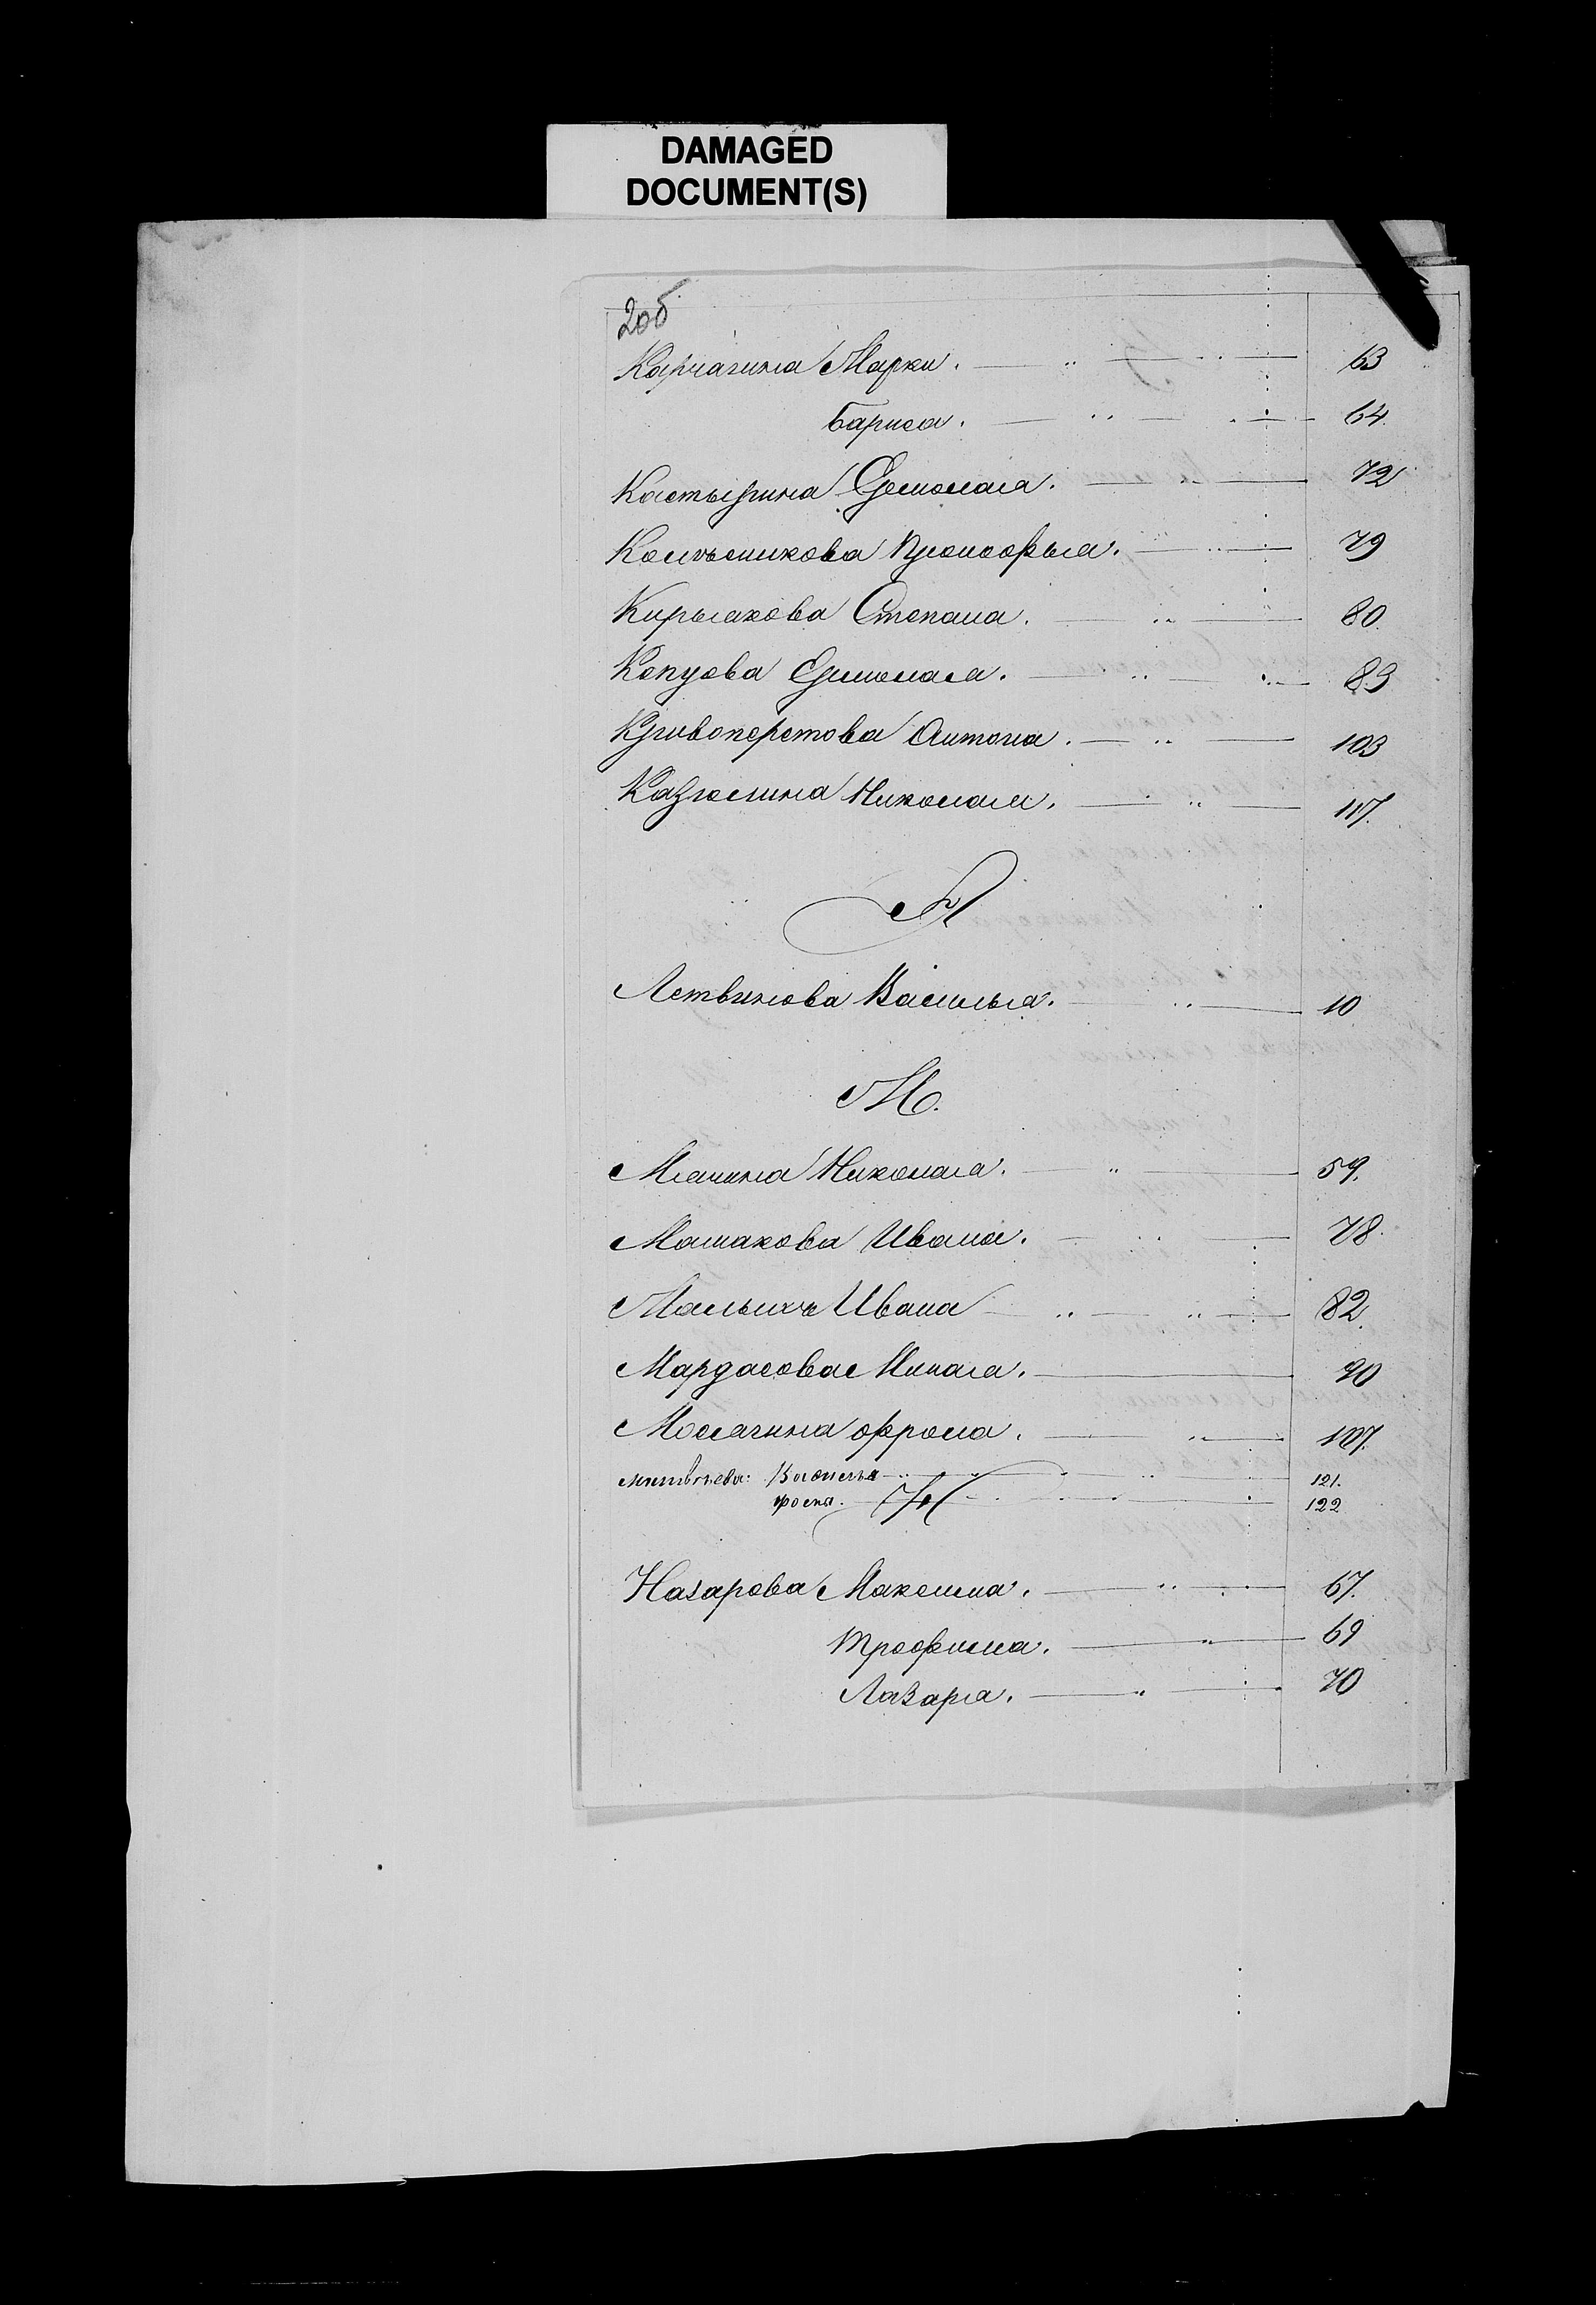 DAMAGED
DOCUMENT(S)
2об
Карчагина Марки. 63
Бариса. 64
Кастырина Ермолая. 72
Колѣсникова Прокофья. 79
Кирьякова Степана. 80
Копузова Ермолая. 83
Кривоперстова Антона. 103
Казюлина Николая. 117.
Л
Летвинова Василья. 10
М.
Мячина Николая. 59.
Машакова Ивана. 78.
Малыхъ Ивана 82.
Мардасова Миная. 90
Молягина Фрола. 107.
Василья 121.
122
Н
Назарова Максима. 67.
Трофима. 69
Лазаря. 70